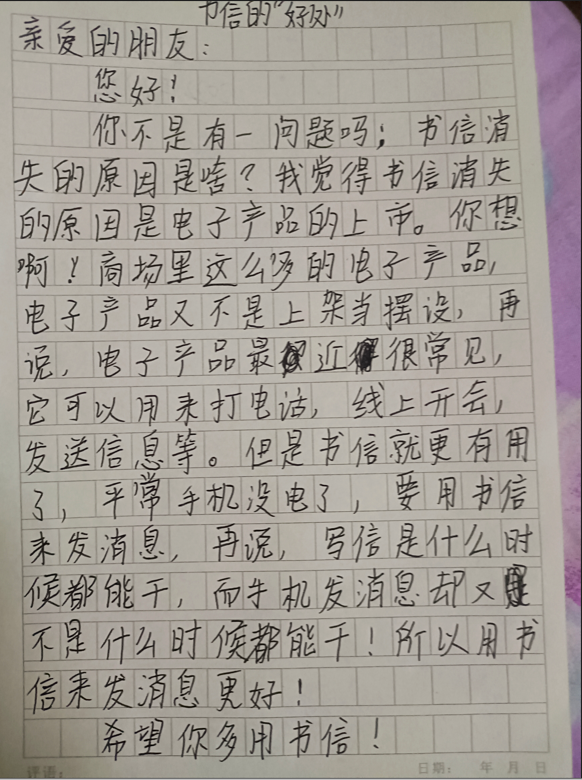 书信的“好处”
亲爱的朋友：
您好！
你不是有一问题吗；书信消
失的原因是啥？我觉得书信消失
的原因是电子产品的上市。你想
啊！商场里这么多的电子产品，
电子产品又不是上架当摆设，再
说，电子产品最近很常见，
它可以用来打电话，线上开会，
发送信息等。但是书信就更有用
了，平常手机没电了，要用书信
来发消息，再说，写信是什么时
候都能干，而手机发消息却又
不是什么时候都能干！所以用书
信来发消息更好！
希望你多用书信！
评语： 日期： 年 月 日